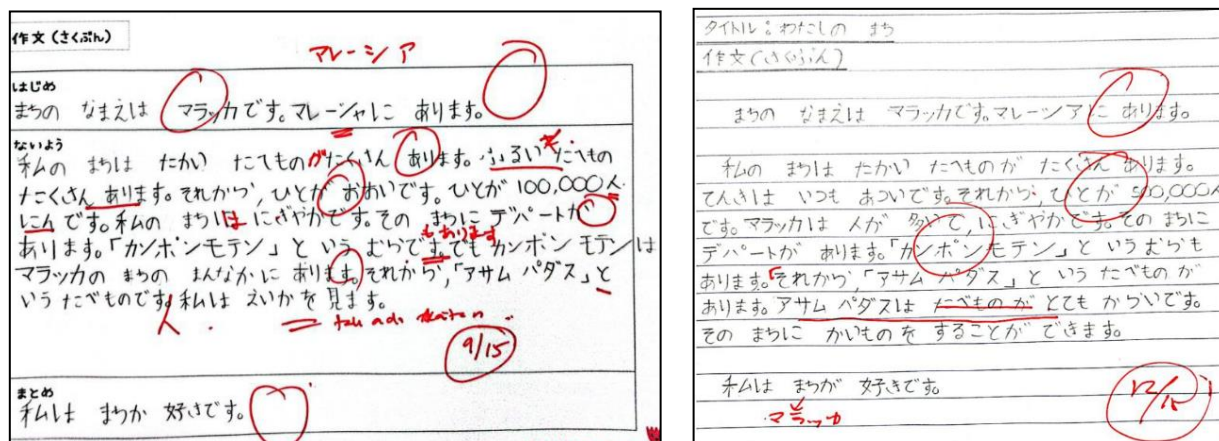 作文(さくぶん)
マレーシア
はじめ
まちの なまえは マラッカです。マレーシャに あります。
ないよう
私の まちは たかい たてものがたくさん あります。ふるい たてもの
たくさん あります。それから、ひとが おおいです。ひとが 100,000人
にんです。私の まちは にぎやかです。その まちに デパートが
もあります
あります。「カンポンモテン」と いう むらです。でも カンポン モテンは
マラッカの まちの まんなかに あります。それから、「アサム パダス」と
いう たべものです。私は えいがを 見ます。
9/15
まとめ
私は まちが 好きです。
タイトル:わたしの まち
作文(さくぶん)
まちの なまえは マラッカです。マレーシアに あります。
私の まちは たかい たてものが たくさん あります。
てんきは いつも あついです。それから、ひとが 500,000人
です。マラッカは 人が 多いて、にぎやかです。その まちに
デパートが あります。「カンポンモテン」と いうむらも
あります。それから、「アサム パダス」と いう たべものが
あります。アサム ペダスは たべものが とても からいです。
その まちに かいものを することが できます。
私は まちが 好きです。
マラッカ
12/15